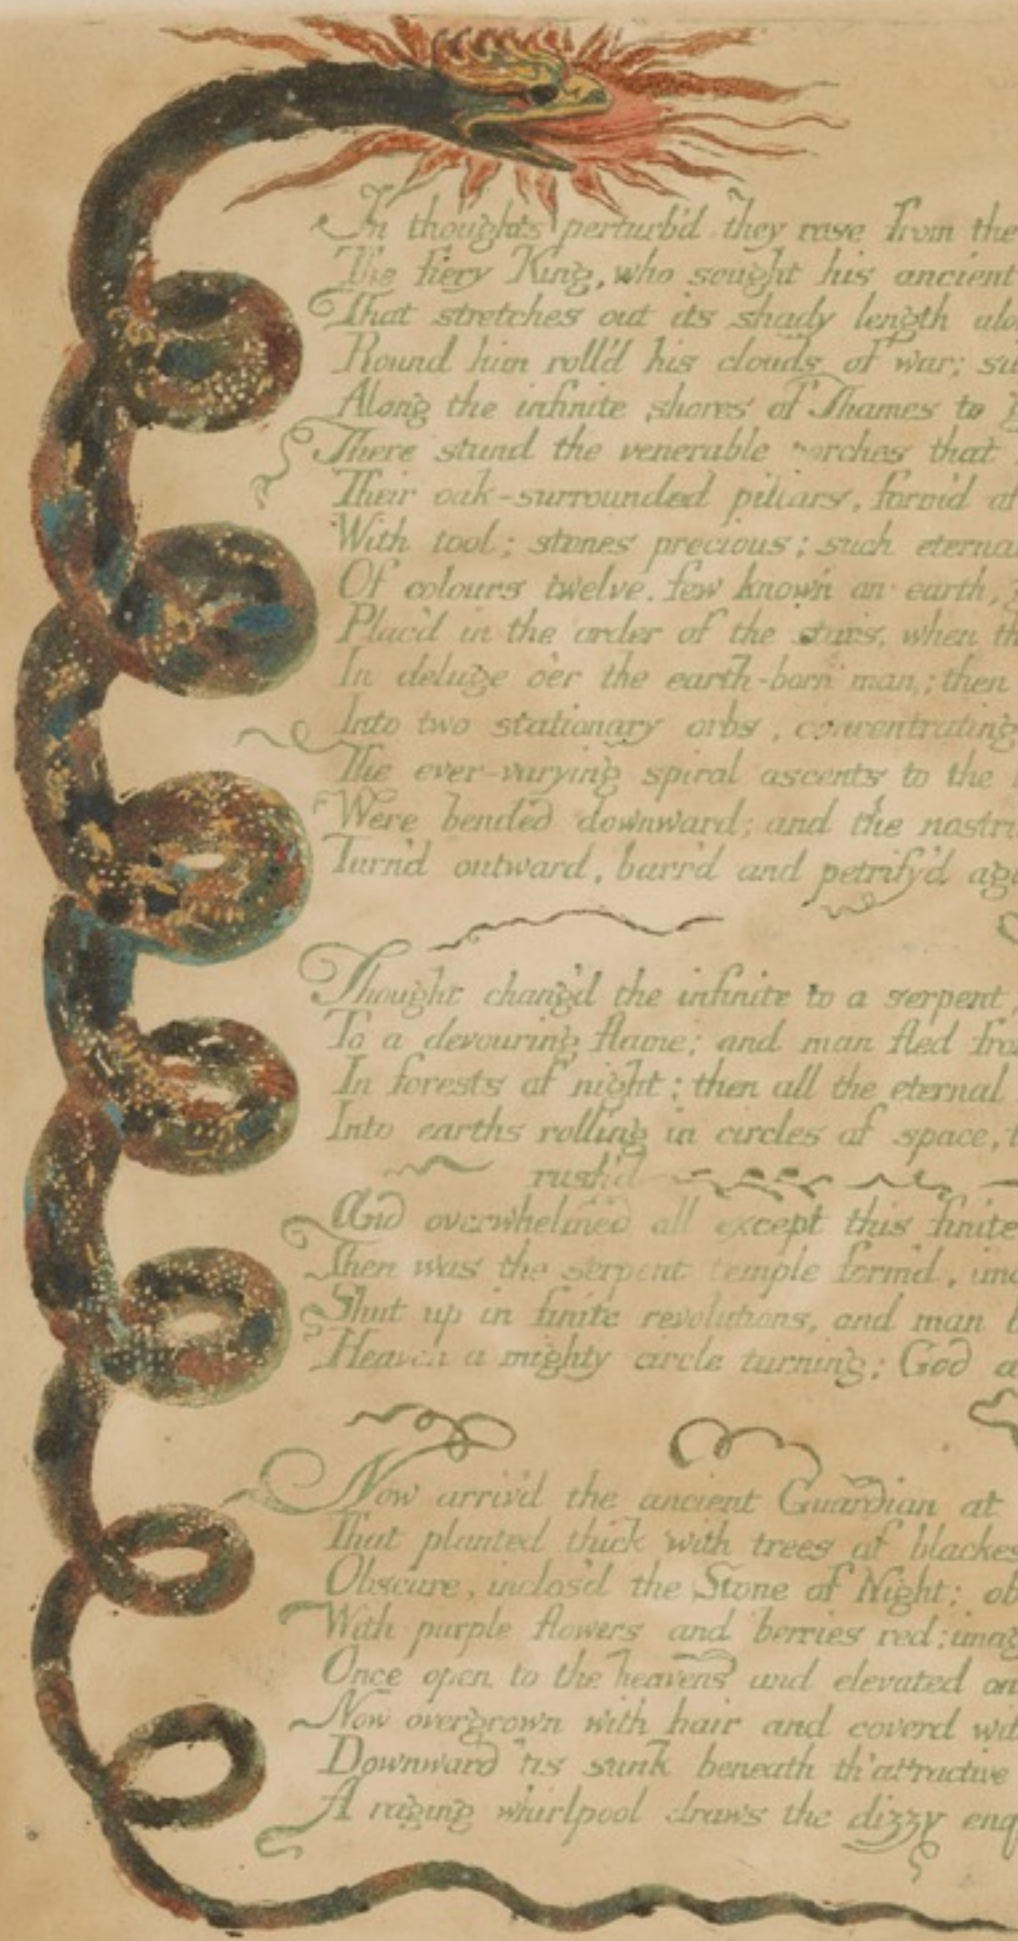 In thoughts perturb'd they rose from the
The fiery King, who sought his ancient
That stretches out its shady length alo
Round him roll'd his clouds of war; si
Along the infinite shores of Thames to
There stand the venerable porches that
Their oak-surrounded pillars, form'd of
With tool; stones precious; such eterna
Of colours twelve. few known on earth,
Plac'd in the order of the stars, when th
In deluge o'er the earth-born man; then
Into two stationary orbs, concentrating
The ever-varying spiral ascents to the
Were bended downward; and the nostri
Turn'd outward, barr'd and petrify'd aga
Thought chang'd the infinite to a serpent,
To a devouring flame; and man fled fro
In forests of night; then all the eternal
Into earths rolling in circles of space, t
rush'd
And overwhelmed all except this finite
Then was the serpent temple form'd,
Shut up in finite revolutions, and man b
Heaven a mighty circle turning; God a
Now arriv'd the ancient Guardian at
That planted thick with trees of blackes
Obscure, inclos'd the Stone of Night; ob
With purple flowers and berries red; imag
Once open to the heavens and elevated on
Now overgrown with hair and coverd wit
Downward 'tis sunk beneath th' attractive
A raging whirlpool draws the dizzy enq